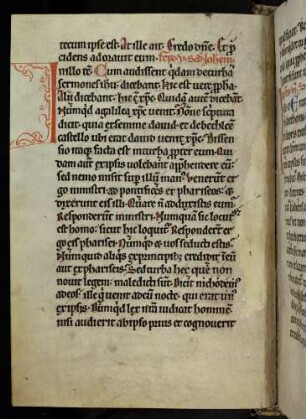 tecum ipse est. At ille ait. Credo dn̄e. Et p̱
cidens adorauit eum. Scd̄ Ioh̄em
In illo tr̄. Cum audissent q̇dam de turba
sermones ih̄u dicebant. Hic est uere ꝓpha
Alii dicebant. hic ē xp̄c. Quidā autē dicebāt
Nūmqd a galilea xp̄c uenit. Nōne scptura
dicit. quia ex semine dauid. et de bethleē
castello ubi erat dauid uenit xp̄c. Dissen
sio itaq; facta est in turba ꝓpter eum. Qui
dam autē ex ipsis uolebant app̄hendere eū.
sed nemo misit sup illū man⁹. Venerūt er
go ministri ad pontifices et phariseos. et
dixerunt eis illi. Quare nō adduxistis eum.
Responderūt ministri. Numquā sic locut⁹
est homo. sicut hic loquit᷑. Responderūt er
go eis pharisei. Nūmqd et uos seducti estis.
Numquid aliq̇s ex principib; credidit in eū
aut ex phariseis. Sed turba hec que non
nouit legem. maledicti sūt. Dicit nichodem⁹
ad eos. ille q̇ uenit ad eū nocte. qui erat un⁹
ex ipsis. Numqd lex nr̄a iudicat hominē
nisi audierit ab ipso prius et cognouerit